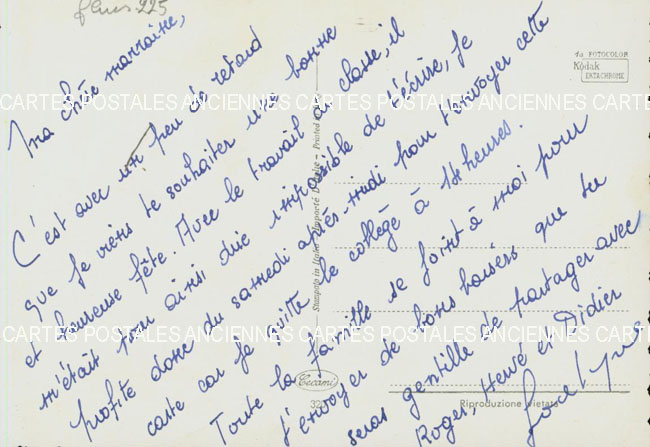 fleurs 225
Ma chère marraine,
C'est avec un peu de retard
que je viens te souhaiter une bonne
et heureuse fête. Avec le travail de classe, il
m'était pour ainsi dire impossible de t'écrire, je
profite donc du samedi après-midi pour t'envoyer cette
carte car je quitte le collège à 14 heures.
Toute la famille se joint à moi pour
t'envoyer de bons baisers que tu
seras gentille de partager avec
Roger, Hervé et Didier
CARTES POSTALES ANCIENNES CARTES POSTALES ANCIENNES CARTES
CARTES POSTALES ANCIENNES CARTES POSTALES ANCIENNES CARTES
Stampata in Italia - Importé d'Italie - Printed in
da FOTOCOLOR
Kodak
EKTACHROME
Cecami
Riproduzione vietata